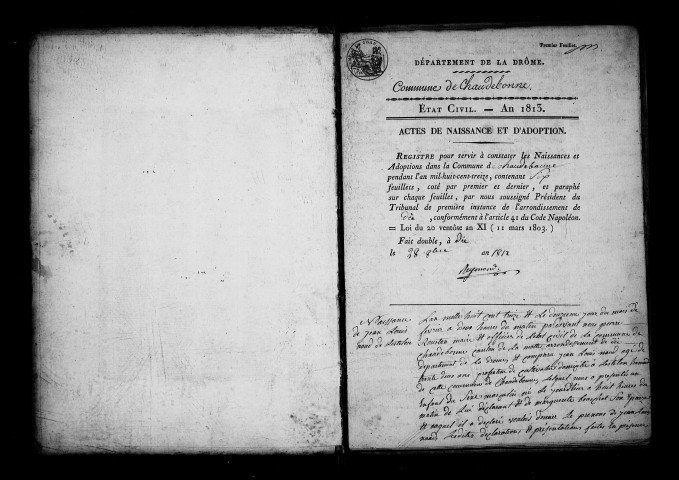 Premier Feuillet.
DÉPARTEMENT DE LA DRÔME.
Commune de Chaudebonne.
ÉTAT CIVIL. — AN 1813.
ACTES DE NAISSANCE ET D'ADOPTION.
REGISTRE pour servir à constater les Naissances et
Adoptions dans la Commune d chaudebonne
pendant l'an mil-huit-cent-treize, contenant Six
feuillets, coté par premier et dernier, et paraphé
sur chaque feuilles, par nous soussigné Président du
Tribunal de première instance de l'arrondissement de
Die, conformément à l'article 41 du Code Napoléon.
= Loi du 20 ventôse an XI (11 mars 1803.)
Fait double, à Die
le 28 9bre an 1812
Naissance
de jean Louis
L'an mille huit cent treize & Le douzieme jour du mois de
fevrier a deux heures du matin pardevant nous pierre
maire & officier de L'etat civil de la commune de
Chaudebonne canton de la motte arrondissement de die
departement de la drome, & comparu jean Louis agé de
trente deux ans profession de Cultivateur domicilié a
de cette commune de Chaudebonne, Lequel nous a présenté un
Enfant du Sexe masculin né Le jourdhier a huit heures du
matin de Lui déclarant & de marguerite Son Epouse
& auquel il a déclaré vouloir donner Le prenom de jean Louis
Lesdites déclarations & présentations faites En présence